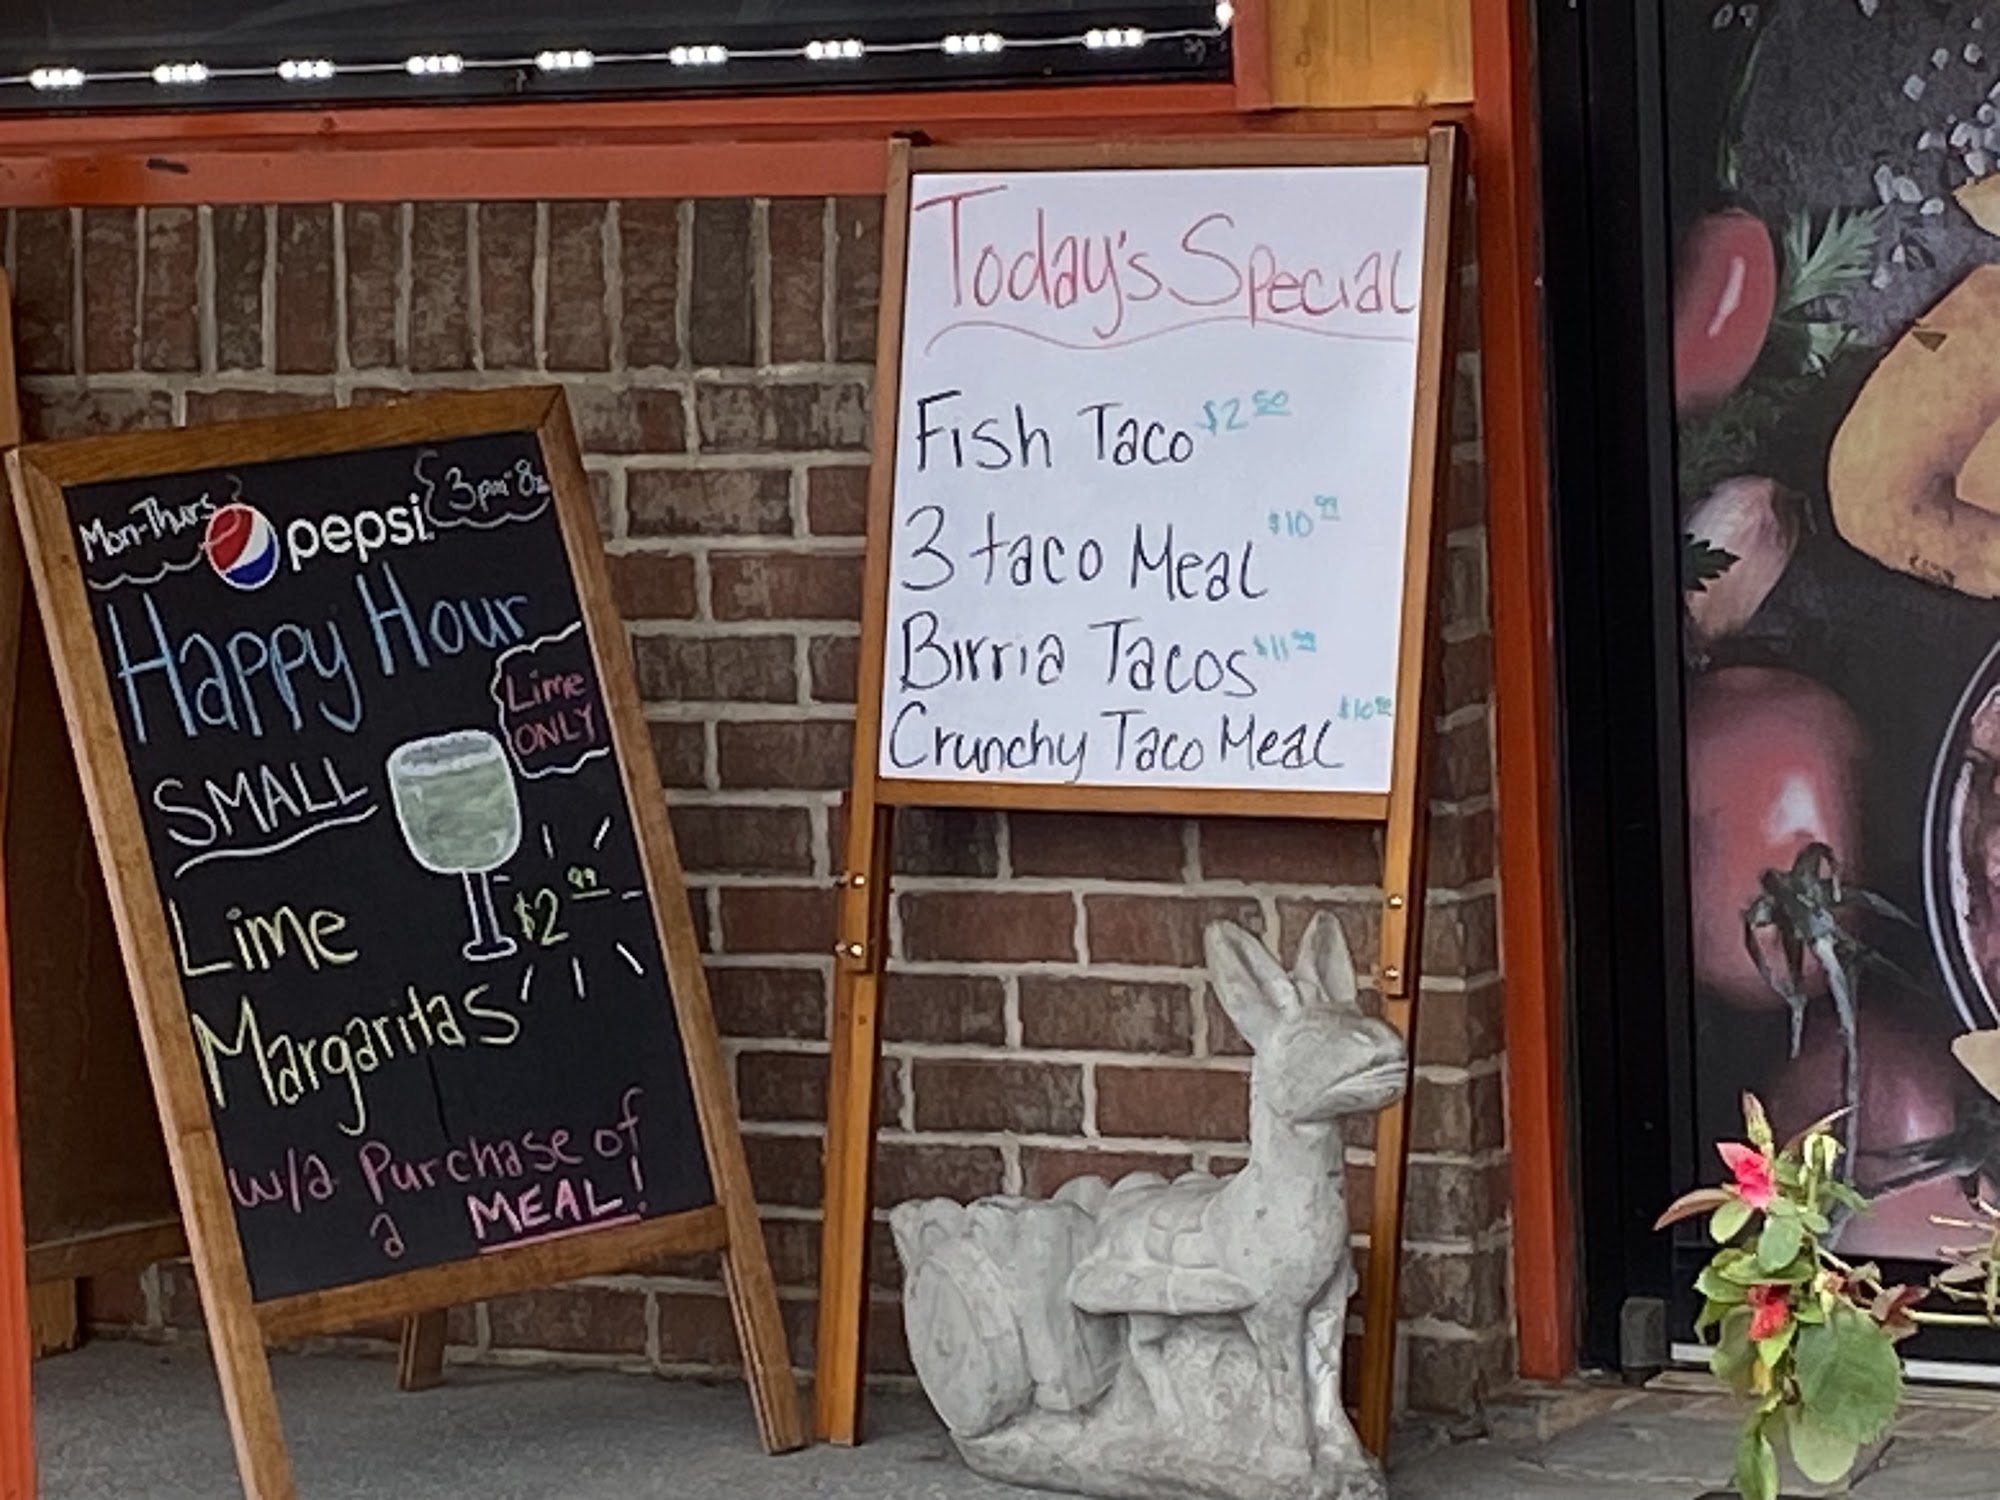 Mon-Thurs
pepsi
3pm-8
Happy Hour
Lime
ONLY
SMALL
$2.99
Lime
Margaritas
w/a Purchase of
a MEAL!
Today's Special
Fish Taco $2.50
3 taco Meal $10.99
Birria Tacos $11.99
Crunchy Taco Meal